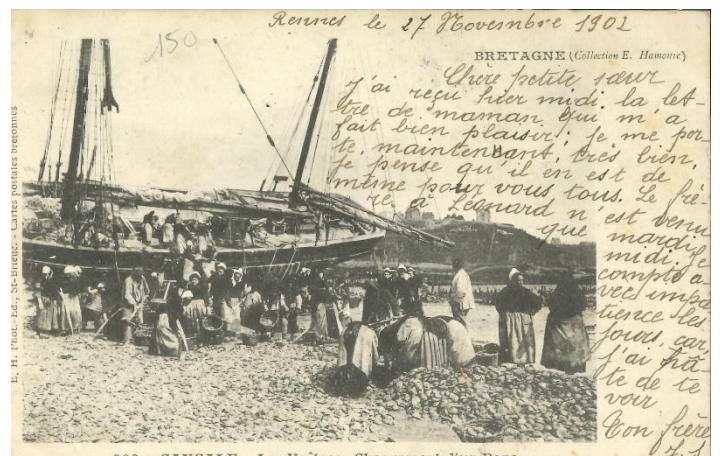 Rennes le 27 Novembre 1902
150
BRETAGNE (Collection E. Hamonic)
Chère petite sœur
J'ai reçu hier midi la let-
tre de maman qui m'a
fait bien plaisir; je me por-
te, maintenant, très bien,
je pense qu'il en est de
même pour vous tous. Le frè-
re à Léonard n'est venu
que mardi
midi. Je
compte a-
vec impa-
tience les
jours, car
j'ai hâ-
te de te
voir
Ton frère
E. H. Phot.-Ed., St-Brieuc. - Cartes postales bretonnes
CANCALE - Les Huîtres - Chargement d'un